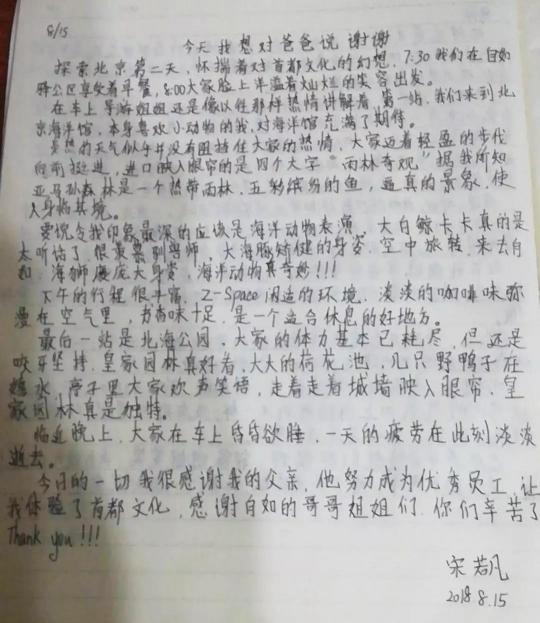 8/15
今天我想对爸爸说 谢谢
探索北京第二天，怀揣着对首都文化的幻想，7:30我们在自如
蜂公区享受着早餐，8:00大家脸上洋溢着灿烂的笑容出发。
在车上导游姐姐还是像以往那样热情讲解着，第一站，我们来到北
京海洋馆，本身喜欢小动物的我，对海洋馆充满了期待。
炎热的天气似乎并没有阻挡住大家的热情，大家迈着轻盈的步伐
向前挺进，进口映入眼帘的是四个大字“雨林奇观”据我所知
亚马孙森林是一个热带雨林，五彩缤纷的鱼，逼真的景象，使
人身临其境。
要说令我印象最深的应该是海洋动物表演，大白鲸卡卡真的是
太听话了，很亲密驯兽师，大海豚矫健的身姿，空中旋转，来去自
如，海狮庞大身姿，海洋动物真奇妙！！！
下午的行程很丰富，Z-Space 闲适的环境，淡淡的咖啡味弥
漫在空气里，书香味十足，是一个适合休息的好地方。
最后一站是北海公园，大家的体力基本已耗尽，但还是
咬牙坚持，皇家园林真好看，大大的荷花池，几只野鸭子在
戏水，亭子里大家欢声笑语，走着走着城墙映入眼帘，皇
家园林真是独特。
临近晚上，大家在车上昏昏欲睡，一天的疲劳在此刻淡淡
逝去。
今日的一切我很感谢我的父亲，他努力成为优秀员工，让
我体验了首都文化，感谢自如的哥哥姐姐们，你们辛苦了
Thank you！！！
宋若凡
2018.8.15